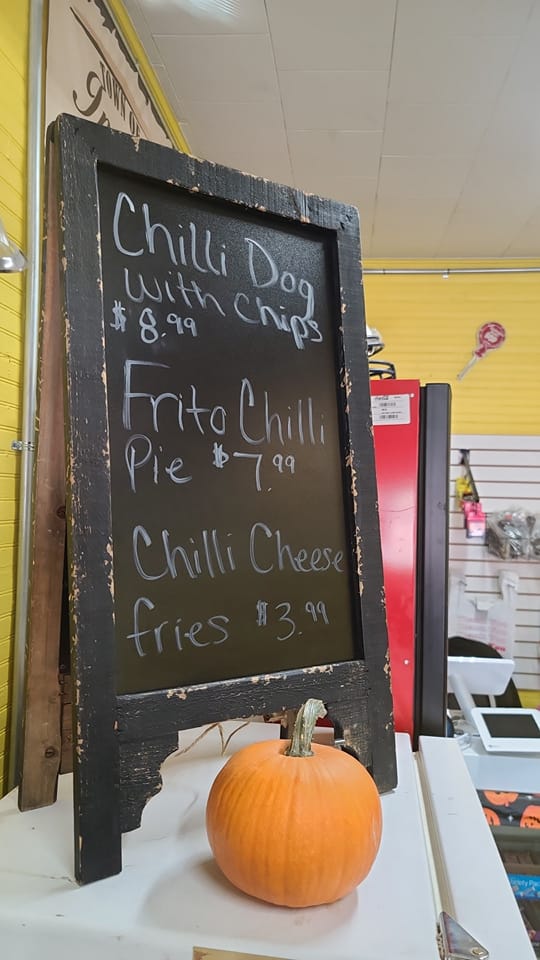 TOWN OF
Chilli Dog
with chips
$8.99
Frito Chilli
Pie $7.99
Chilli Cheese
fries $3.99